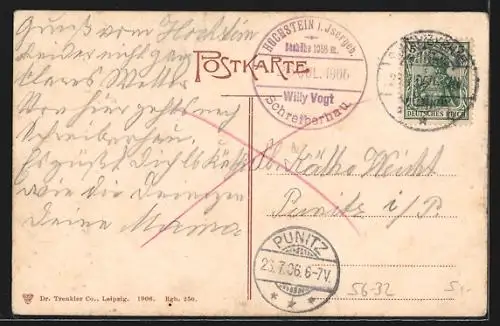 Gruß vom Hochstein
leider nicht ganz
klares Wetter
Von hier gehts nach
Schreiberhau.
Es grüßt Dich lb Käthe
wie die
Deine Mama
POSTKARTE
HOCHSTEIN i. Jsergeb.
Seehöhe 1058 m.
JUL. 1906
Willy Vogt
Schreiberhau.
DEUTSCHES REICH
Käthe
Punitz i/P.
PUNITZ
23.7.06. 6-7V.
* * *
56-32
5,-
Dr. Trenkler Co., Leipzig. 1906. Rgb. 250.